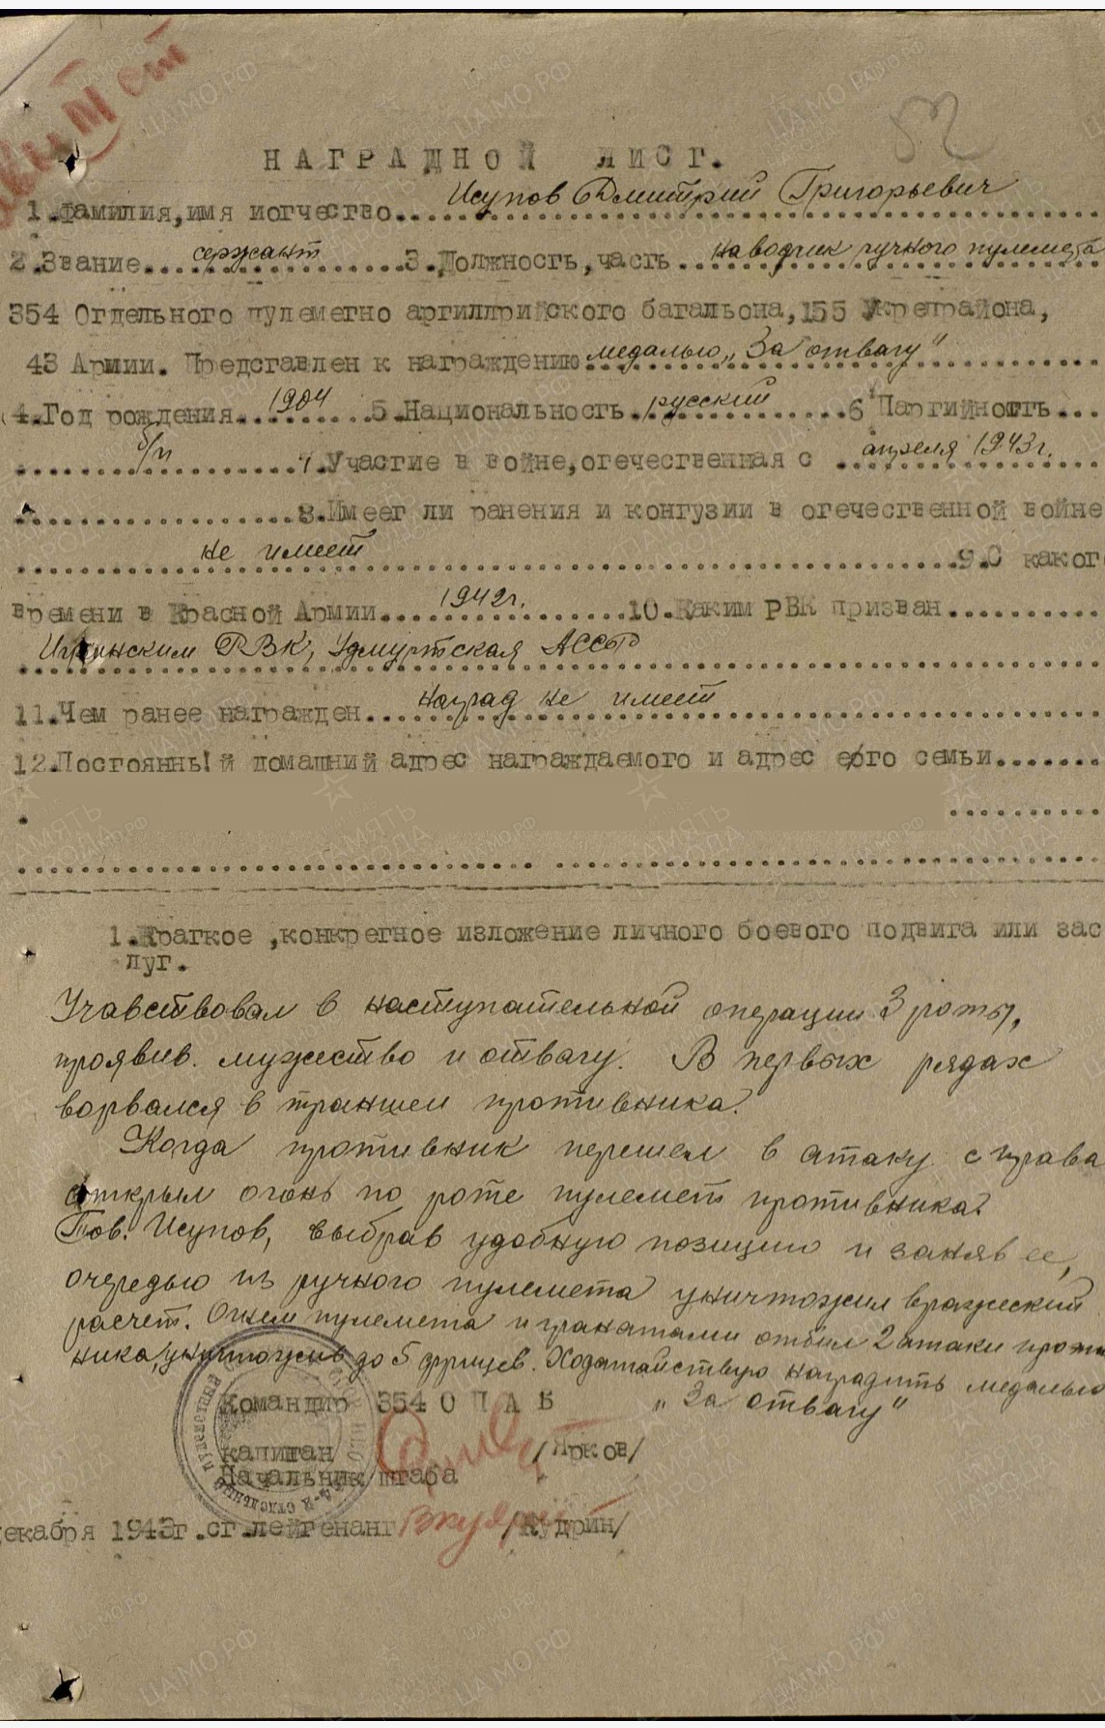 52
НАГРАДНОЙ ЛИСТ.
1.Фамилия,имя иотчество....Исупов Дмитрий Григорьевич
2.Звание....сержант....3.Должность,часть...наводчик ручного пулемета
354 Отдельного пулеметно артиллрийского батальона,155 Укрепрайона,
43 Армии. Представлен к награждению медалью „За отвагу"
4.Год рождения...1904...5.Национальность.русский...6 Партийность...
б/п...7.Участие в войне,отечественная с апреля 1943г.
8.Имеет ли ранения и контузии в отечественной войне
не имеет...9.С каког
времени в Красной Армии....1942г....10.Каким РВК призван....
Игринским РВК, Удмуртская АССР
11.Чем ранее награжден...наград не имеет
12.Постоянный домашний адрес награждаемого и адрес его семьи.......
1.Краткое ,конкретное изложение личного боевого подвига или зас
луг.
Учавствовал в наступательной операции 3 роты,
проявив. мужество и отвагу. В первых рядах
ворвался в траншеи противника.
Когда противник перешел в атаку справа
открыл огонь по роте пулемет противника.
Тов. Исупов, выбрав удобную позицию и заняв ее,
очередью из ручного пулемета уничтожил вражеский
расчет. Огнем пулемета и гранатами отбил 2 атаки проти
ника, уничтожив до 5 фрицев. Ходатайствую наградить медалью
„За отвагу"
Командир 354 О П А Б
капитан /Ярков/
Начальник штаба
декабря 1943г.ст.лейтенант /Кудрин/